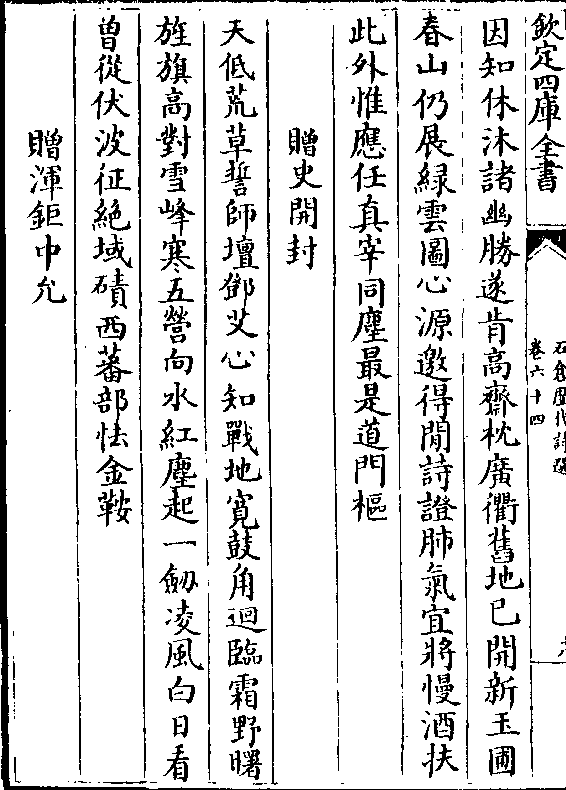 欽定四庫全書
石倉歷代詩選
卷六十四
因知休沐諸幽勝遂肯高齋枕廣衢舊地已開新玉圃
春山仍展緑雲圖心源邀得閒詩證肺氣宜將慢酒扶
此外惟應任真宰同塵最是道門樞
贈史開封
天低荒草誓師壇鄧艾心知戰地寛鼓角迴臨霜野曙
旌旗高對雪峰寒五營向水紅塵起一劒凌風白日看
曽從伏波征絶域磧西蕃部怯金鞍
贈渾鉅中允